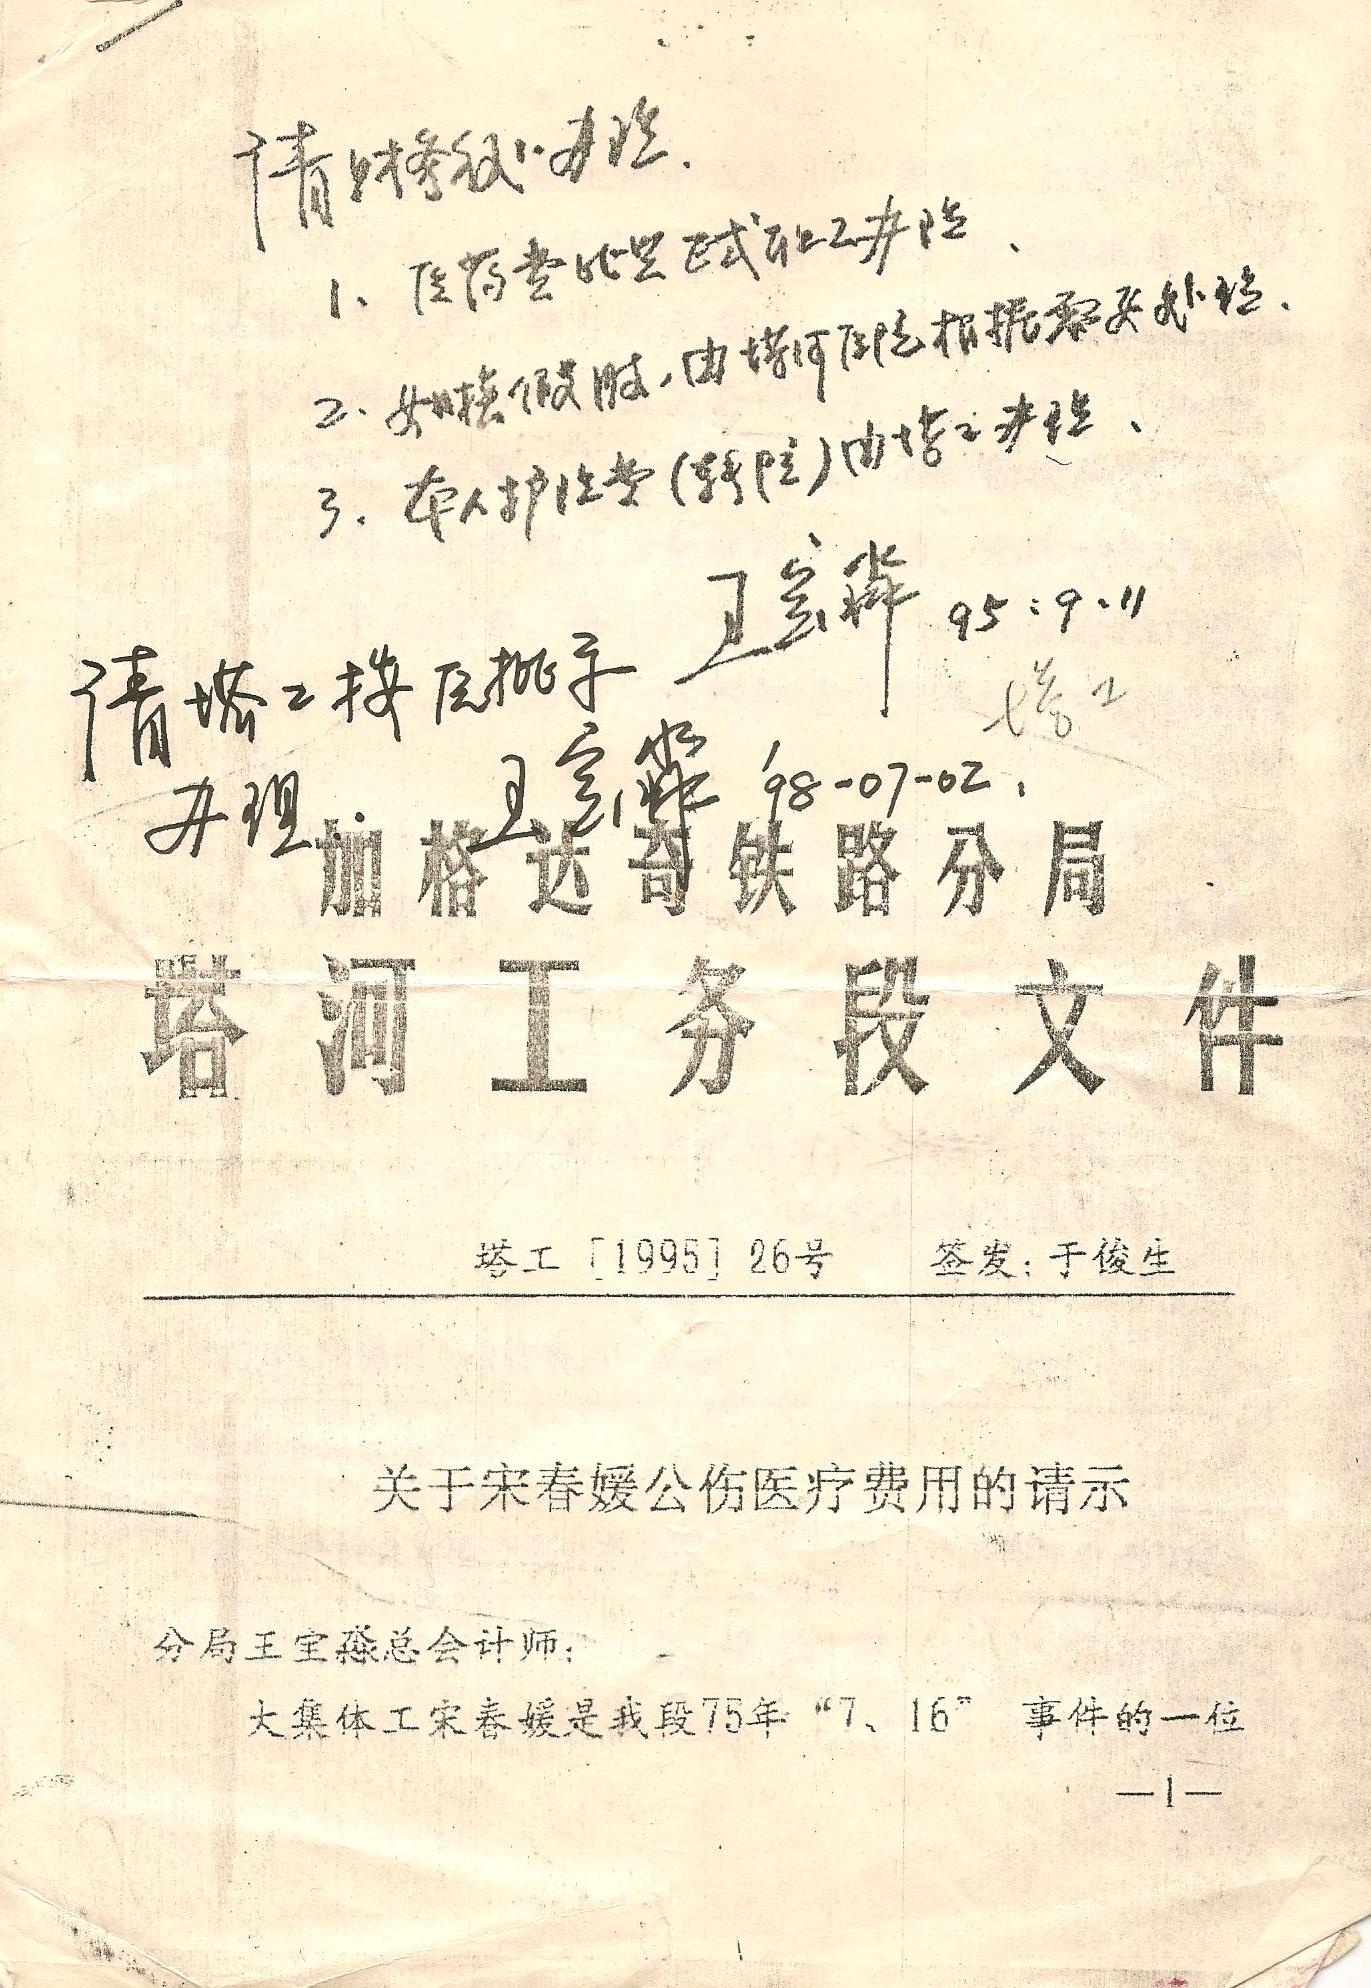 请财务部办理.
1、医药费比照正式职工办理、
2.如换假肢,由塔河医院根据需要处理、
3、本人护理费(转院)由塔工办理、
王宝 95:9.11
塔工
请塔工按原批示
办理. 王宝 '98-07-02.
加格达奇铁路分局
塔河工务段文件
塔工［1995］26号 签发:于俊生
关于宋春媛公伤医疗费用的请示
分局王宝总会计师:
大集体工宋春媛是我段75年“7、16” 事件的一位
—1—